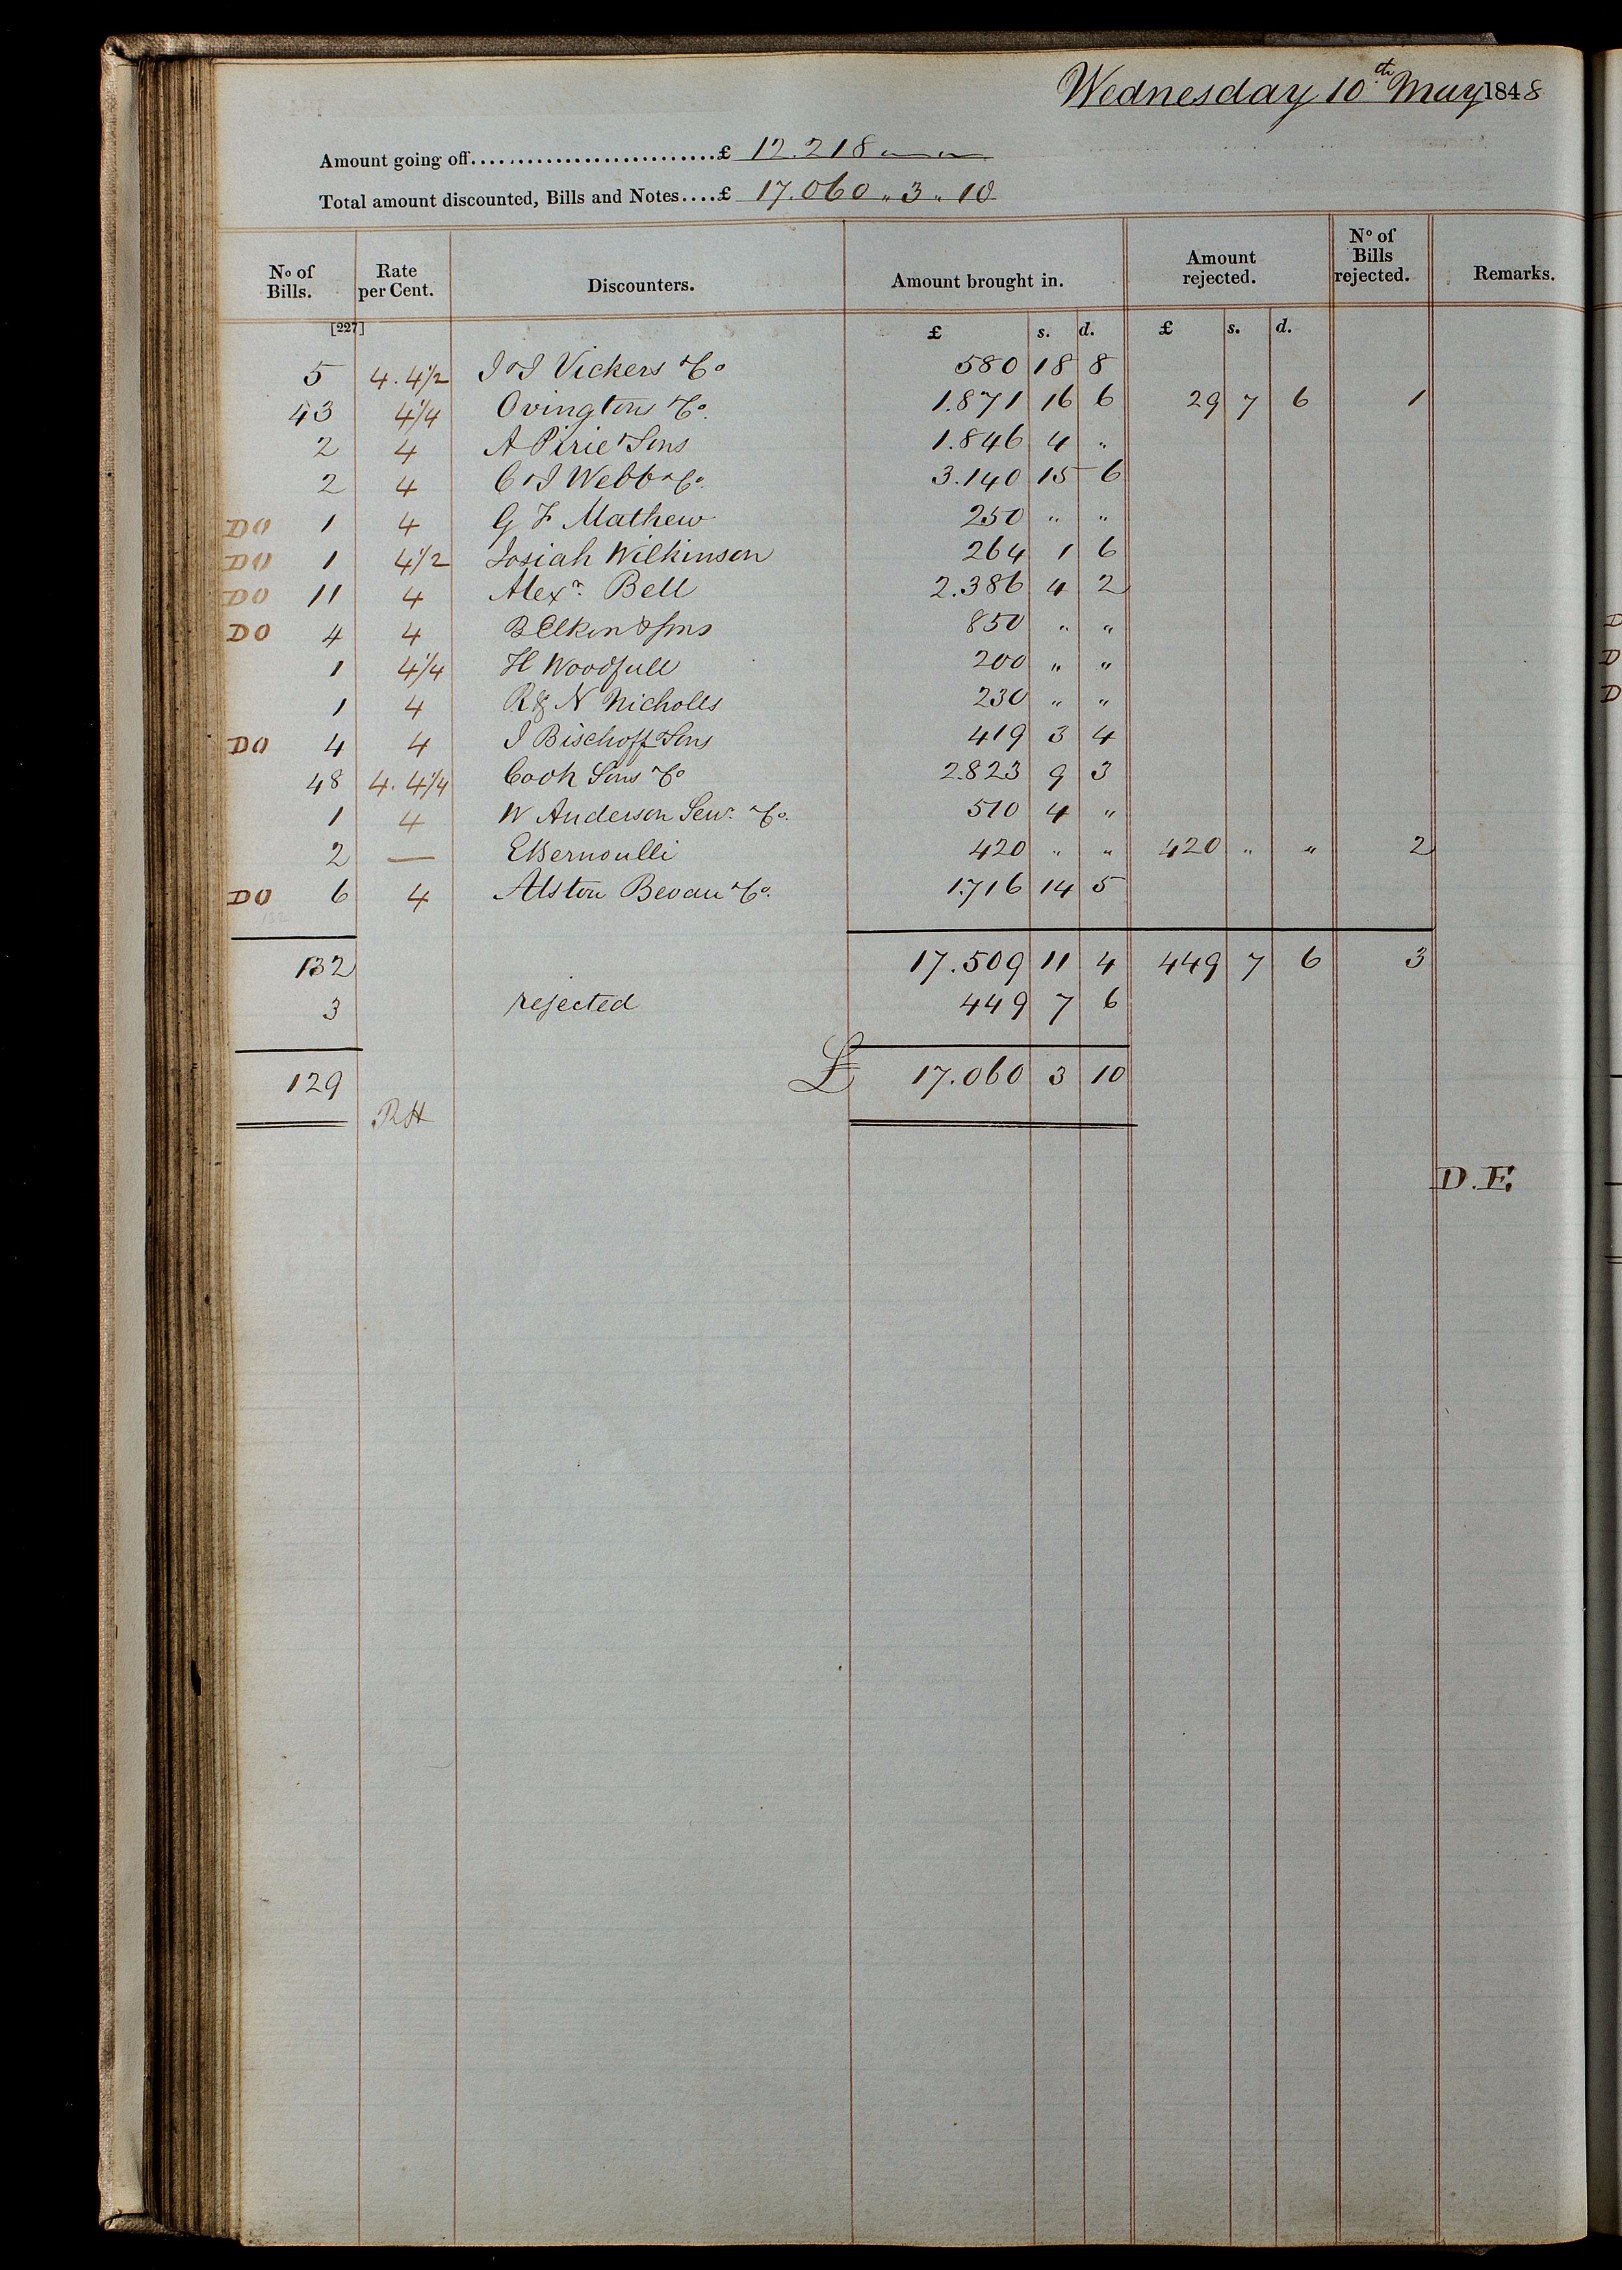 Wednesday 10th May 1848
Amount going off...........................£ 12.218 " "
Total amount discounted, Bills and Notes....£ 17.060 " 3 " 10
No of Bills. Rate per Cent. Discounters. Amount brought in. Amount rejected. No of Bills rejected. Remarks.
[227] £ s. d. £ s. d.
5 4. 4 1/2 J & J Vickers & Co 580 18 8
43 4 1/4 Ovingtons & Co. 1.871 16 6 29 7 6 1
2 4 A Pirie & Sons 1.846 4 "
2 4 C & J Webb & Co. 3.140 15 6
DO 1 4 G F Mathew 250 " "
DO 1 4 1/2 Josiah Wilkinson 264 1 6
DO 11 4 Alexr. Bell 2.386 4 2
DO 4 4 B Elkin & Sons 850 " "
1 4 1/4 H Woodfull 200 " "
1 4 R & N Nicholls 230 " "
DO 4 4 J Bischoff & Sons 419 3 4
48 4. 4 1/4 Cook Sons & Co 2.823 9 3
1 4 W Anderson Senr. & Co. 510 4 "
2 — E Bernoulli 420 " " 420 " " 2
DO 6 4 Alston Bevan & Co. 1.716 14 5
132 17.509 11 4 449 7 6 3
3 rejected 449 7 6
129 £ 17.060 3 10
RH
D.E.